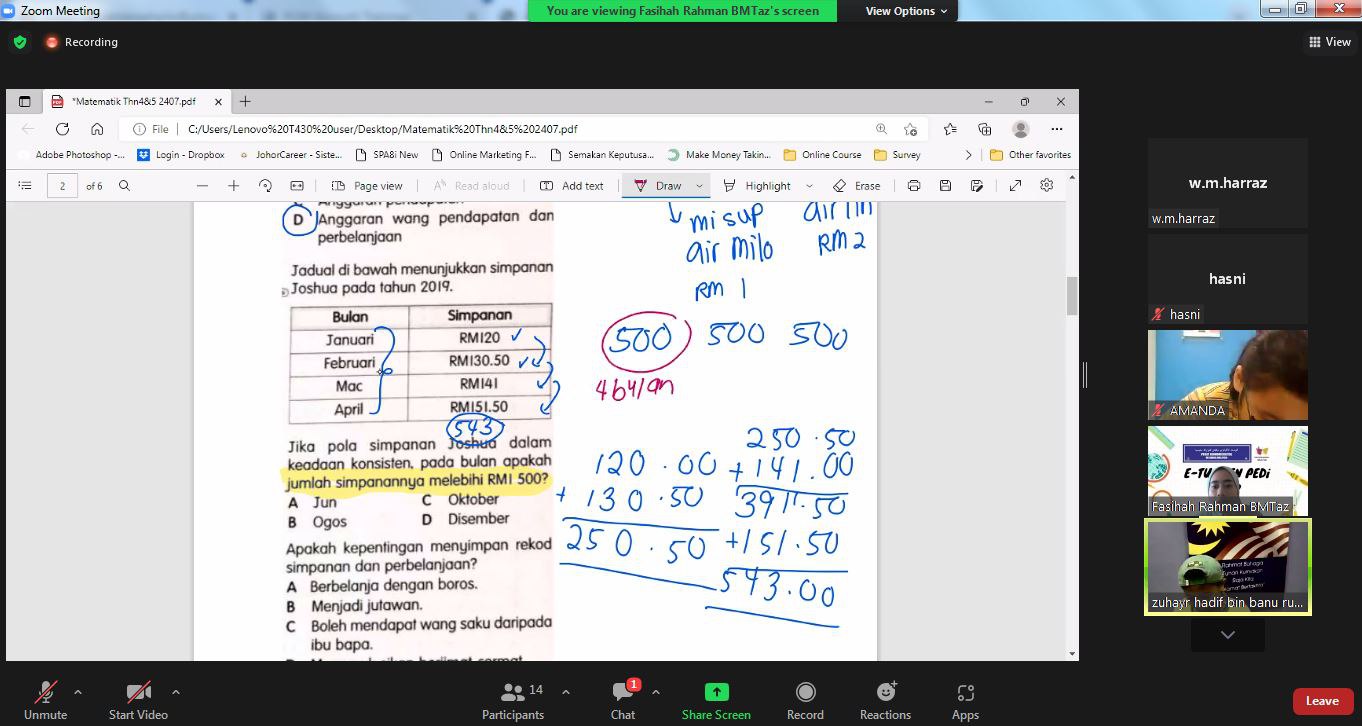 Zoom Meeting
You are viewing Fasihah Rahman BMTaz's screen
View Options
Recording
View
*Matematik Thn4&5 2407.pdf
File
C:/Users/Lenovo%20T430%20user/Desktop/Matematik%20Thn4&5%202407.pdf
Adobe Photoshop -...
Login - Dropbox
JohorCareer - Siste...
SPA8i New
Online Marketing F...
Semakan Keputusa...
Make Money Takin...
Online Course
Survey
Other favorites
2 of 6
Page view
Read aloud
Add text
Draw
Highlight
Erase
D Anggaran wang pendapatan dan
perbelanjaan
Jadual di bawah menunjukkan simpanan
Joshua pada tahun 2019.
Bulan Simpanan
Januari RM120
Februari RM130.50
Mac RM141
April RM151.50
543
Jika pola simpanan Joshua dalam
keadaan konsisten, pada bulan apakah
jumlah simpanannya melebihi RM1 500?
A Jun C Oktober
B Ogos D Disember
Apakah kepentingan menyimpan rekod
simpanan dan perbelanjaan?
A Berbelanja dengan boros.
B Menjadi jutawan.
C Boleh mendapat wang saku daripada
ibu bapa.
mi sup
air milo
RM 1
RM2
500 500 500
4 bulan
120.00
+ 130.50
250.50
250.50
+141.00
391.50
+151.50
543.00
w.m.harraz
w.m.harraz
hasni
hasni
AMANDA
E-TU
N PEDi
Fasihah Rahman BMTaz
zuhayr hadif bin banu ru...
Unmute
Start Video
Participants 14
Chat 1
Share Screen
Record
Reactions
Apps
Leave